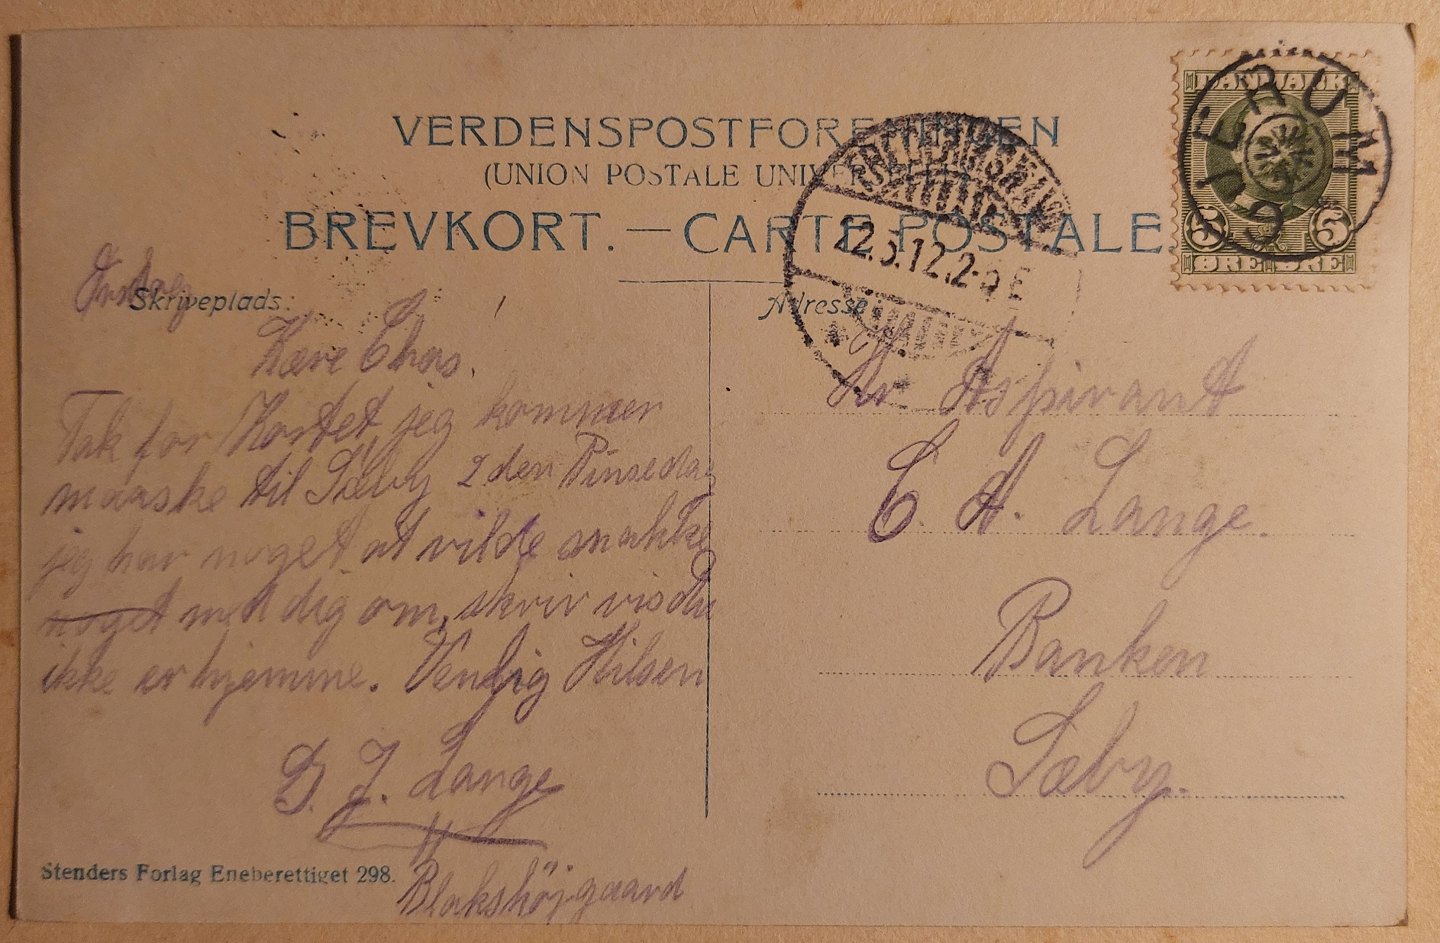 VERDENSPOSTFORENINGEN
(UNION POSTALE UNIVERSELLE)
BREVKORT. — CARTE POSTALE.
DANMARK
5 5
ØRE ØRE
GJERUM
FREDERIKSHAVN
22.5.12.2-9E
Onsdag
Skriveplads:
Kære Chas.
Tak for Kortet, jeg kommer
maaske til Sæby 2 den Pinsedag
jeg har noget at vilde snakke
noget med dig om, skriv vis du
ikke er hjemme. Venlig Hilsen
J. Lange
Blakshøjgaard
Stenders Forlag Eneberettiget 298.
Adresse:
Hr Aspirant
C. A. Lange.
Banken
Sæby.